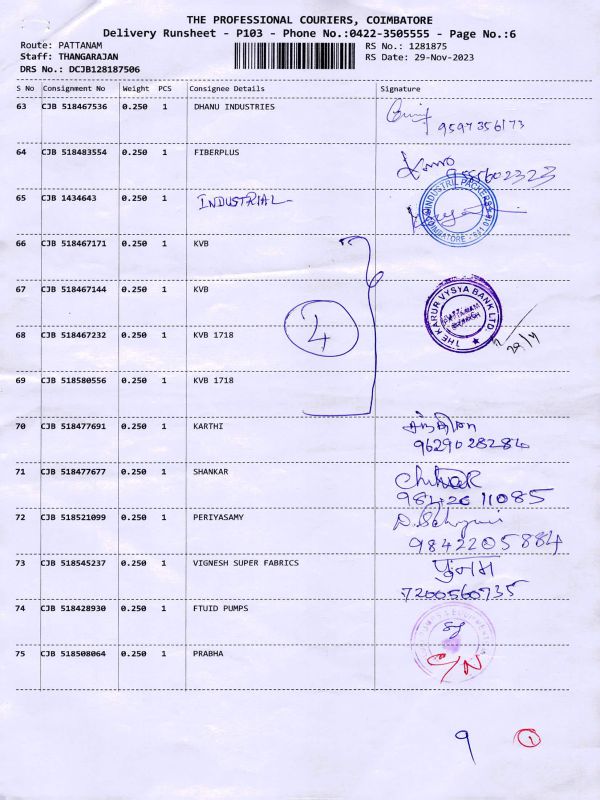 THE PROFESSIONAL COURIERS, COIMBATORE
Delivery Runsheet - P103 - Phone No.:0422-3505555 - Page No.:6
Route: PATTANAM RS No.: 1281875
Staff: THANGARAJAN RS Date: 29-Nov-2023
DRS No.: DCJB128187506
S No Consignment No Weight PCS Consignee Details Signature
63 CJB 518467536 0.250 1 DHANU INDUSTRIES
9597356173
64 CJB 518483554 0.250 1 FIBERPLUS
9555602323
65 CJB 1434643 0.250 1 INDUSTRIAL
66 CJB 518467171 0.250 1 KVB
67 CJB 518467144 0.250 1 KVB
THE KARUR VYSYA BANK LTD
PATTANAM BRANCH
4
29/11
68 CJB 518467232 0.250 1 KVB 1718
69 CJB 518580556 0.250 1 KVB 1718
70 CJB 518477691 0.250 1 KARTHI
9629028284
71 CJB 518477677 0.250 1 SHANKAR
9842011085
72 CJB 518521099 0.250 1 PERIYASAMY
9842205884
73 CJB 518545237 0.250 1 VIGNESH SUPER FABRICS
7200560735
74 CJB 518428930 0.250 1 FTUID PUMPS
75 CJB 518508064 0.250 1 PRABHA C/N
9 1